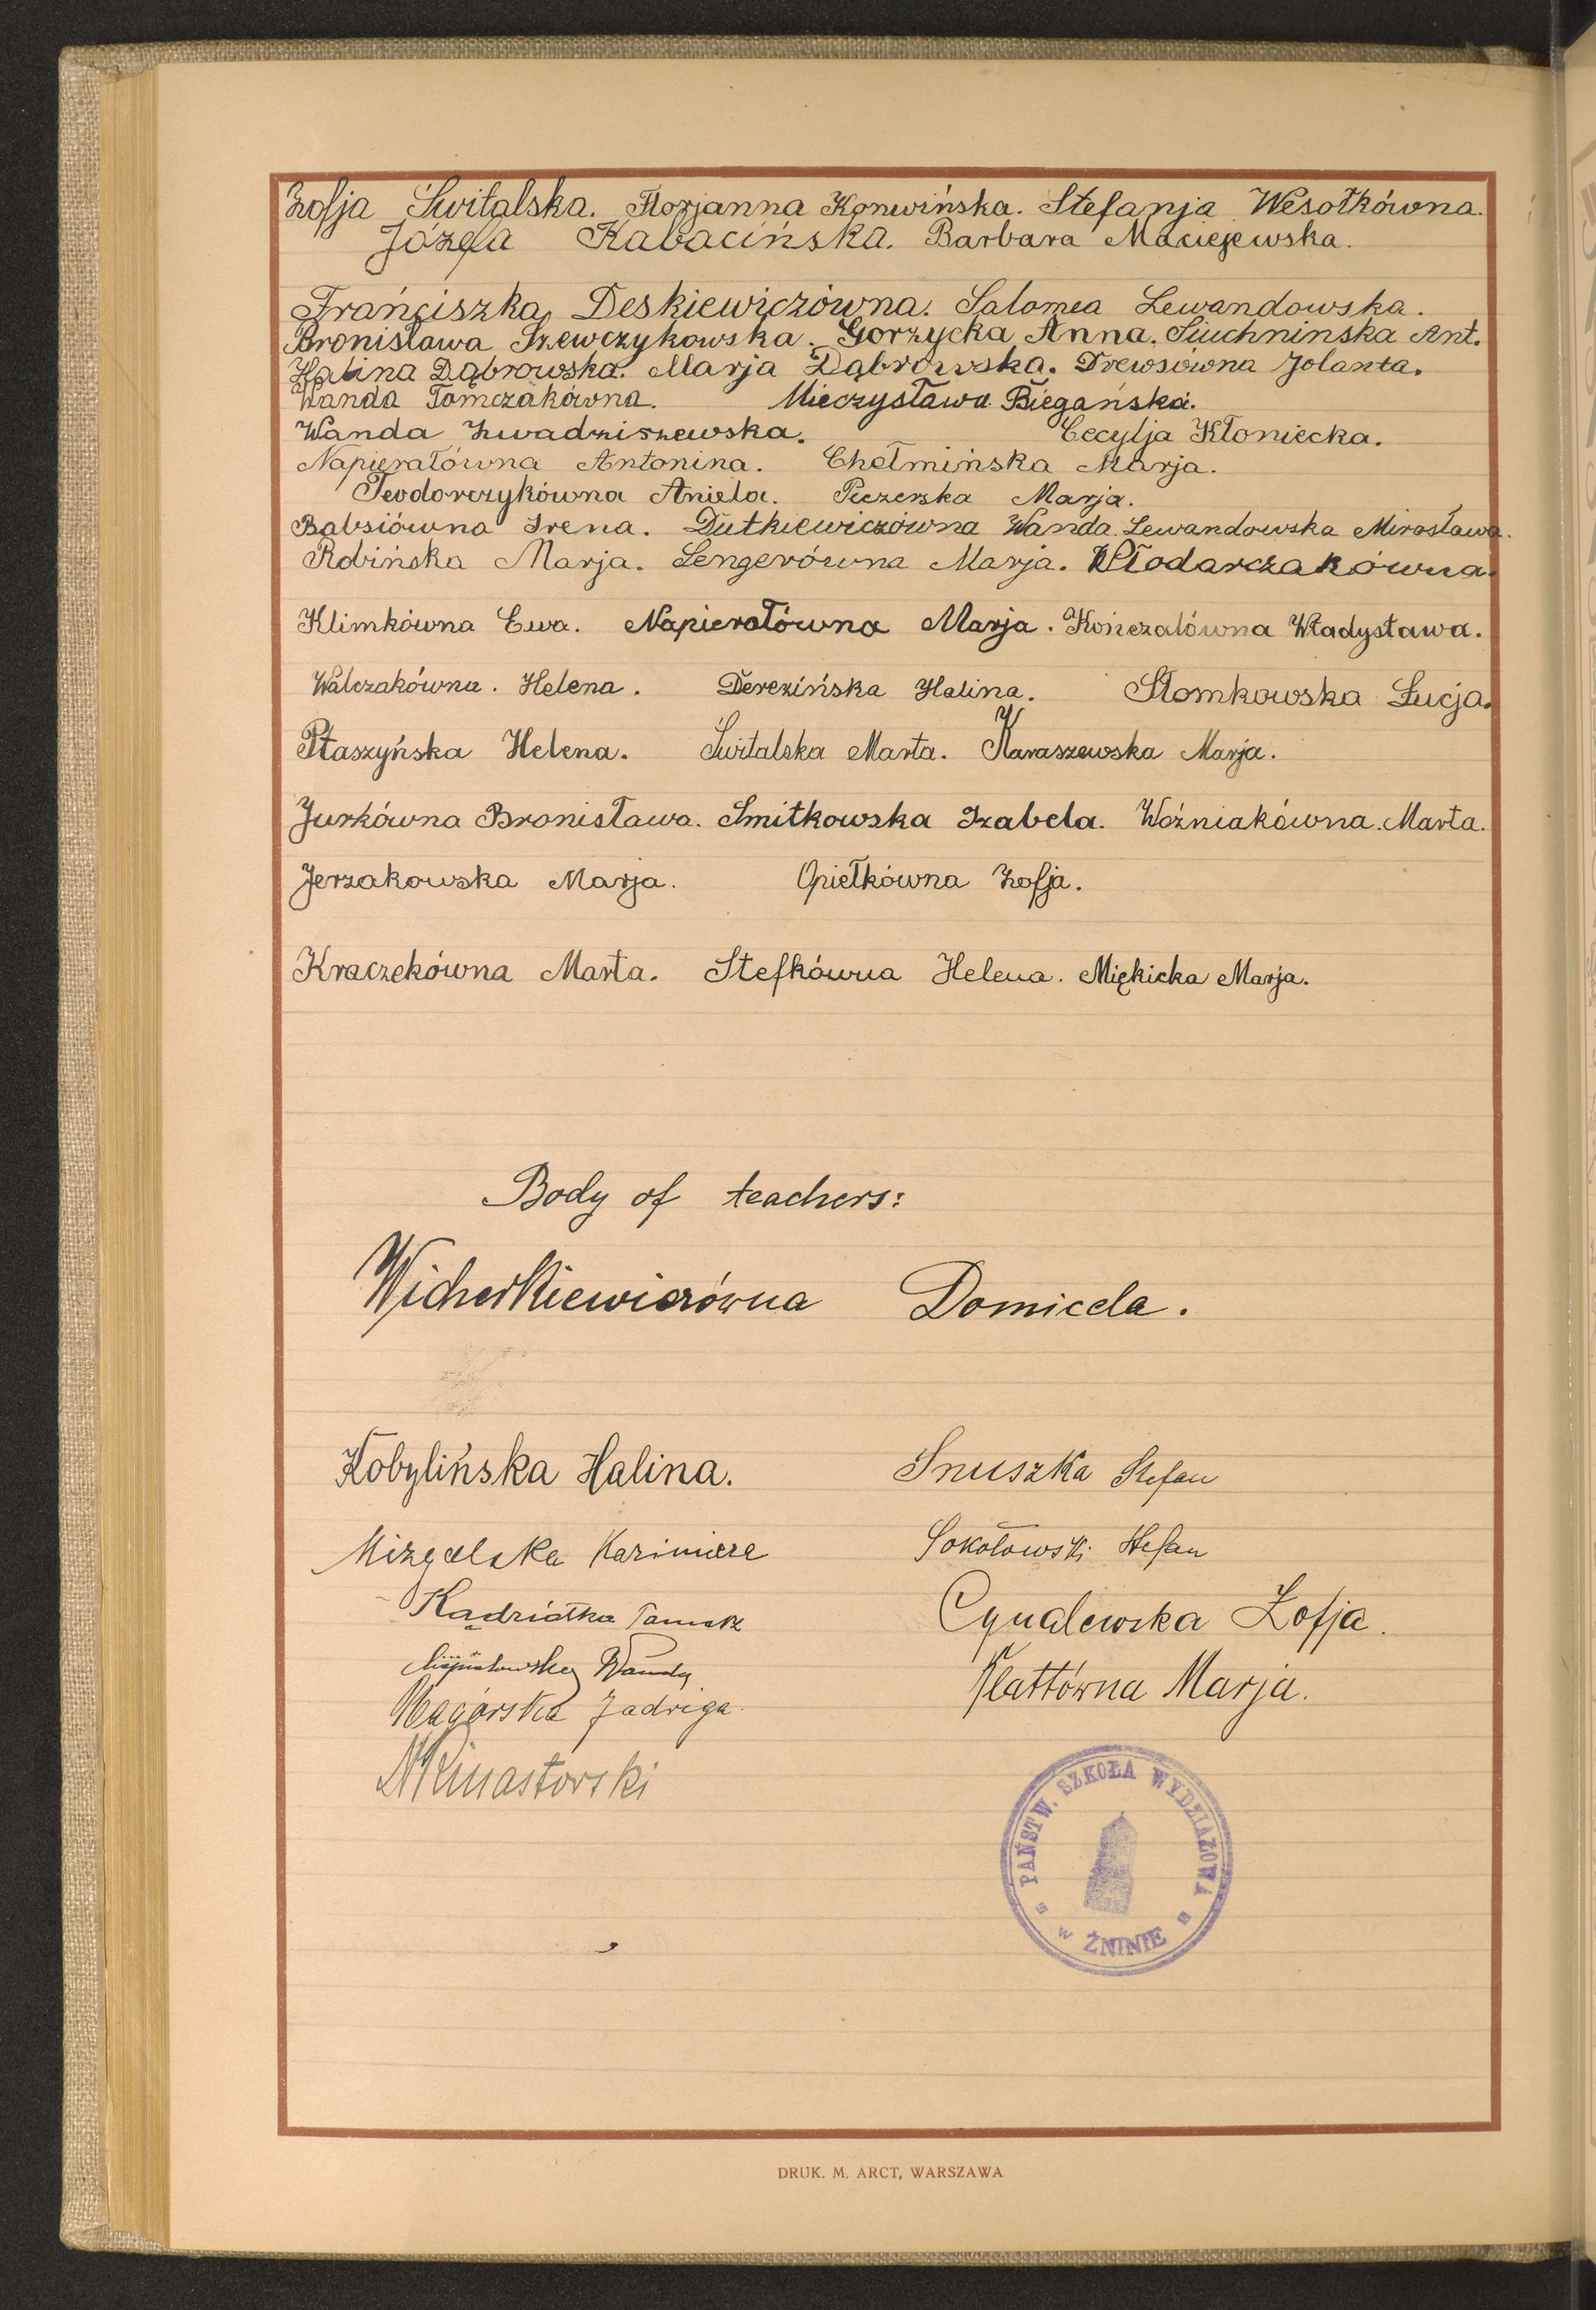 Zofja Świtalska. Florjanna Konwińska. Stefanja Wesołkówna.
Józefa Kabacińska. Barbara Maciejewska.
Franciszka Deskiewiczówna. Salomea Lewandowska.
Bronisława Szewczykowska. Gorzycka Anna. Siuchninska Ant.
Halina Dąbrowska. Marja Dąbrowska. Drewsówna Jolanta.
Wanda Tomczakówna. Mieczysława Biegańska.
Wanda Zwadziszewska. Cecylja Kłoniecka.
Napierałówna Antonina. Chełmińska Marja.
Teodorczykówna Aniela. Pieczerska Marja.
Bąbsiówna Irena. Dutkiewiczówna Wanda. Lewandowska Mirosława.
Robińska Marja. Lengerówna Marja. Włodarczakówna.
Klimkówna Ewa. Napierałówna Marja. Kończalówna Władysława.
Walczakówna. Helena. Derezińska Halina. Słomkowska Łucja.
Ptaszyńska Helena. Świtalska Marta. Karaszewska Marja.
Jurkówna Bronisława. Smitkowska Izabela. Woźniakówna. Marta.
Jerzakowska Marja. Opiełkówna Zofja.
Kraczekówna Marta. Stefkówna Helena. Miękicka Marja.
Body of teachers:
Wicherkiewiczówna Domicela.
Kobylińska Halina. Snuszka Stefan
Mizgalska Kazimiera Sokołowski Stefan
Kądziołka Cynalewska Zofja.
Wanda Klattówna Marja.
Nagórska Jadwiga
PAŃSTW. SZKOŁA WYDZIAŁOWA
w ŻNINIE
DRUK. M. ARCT, WARSZAWA